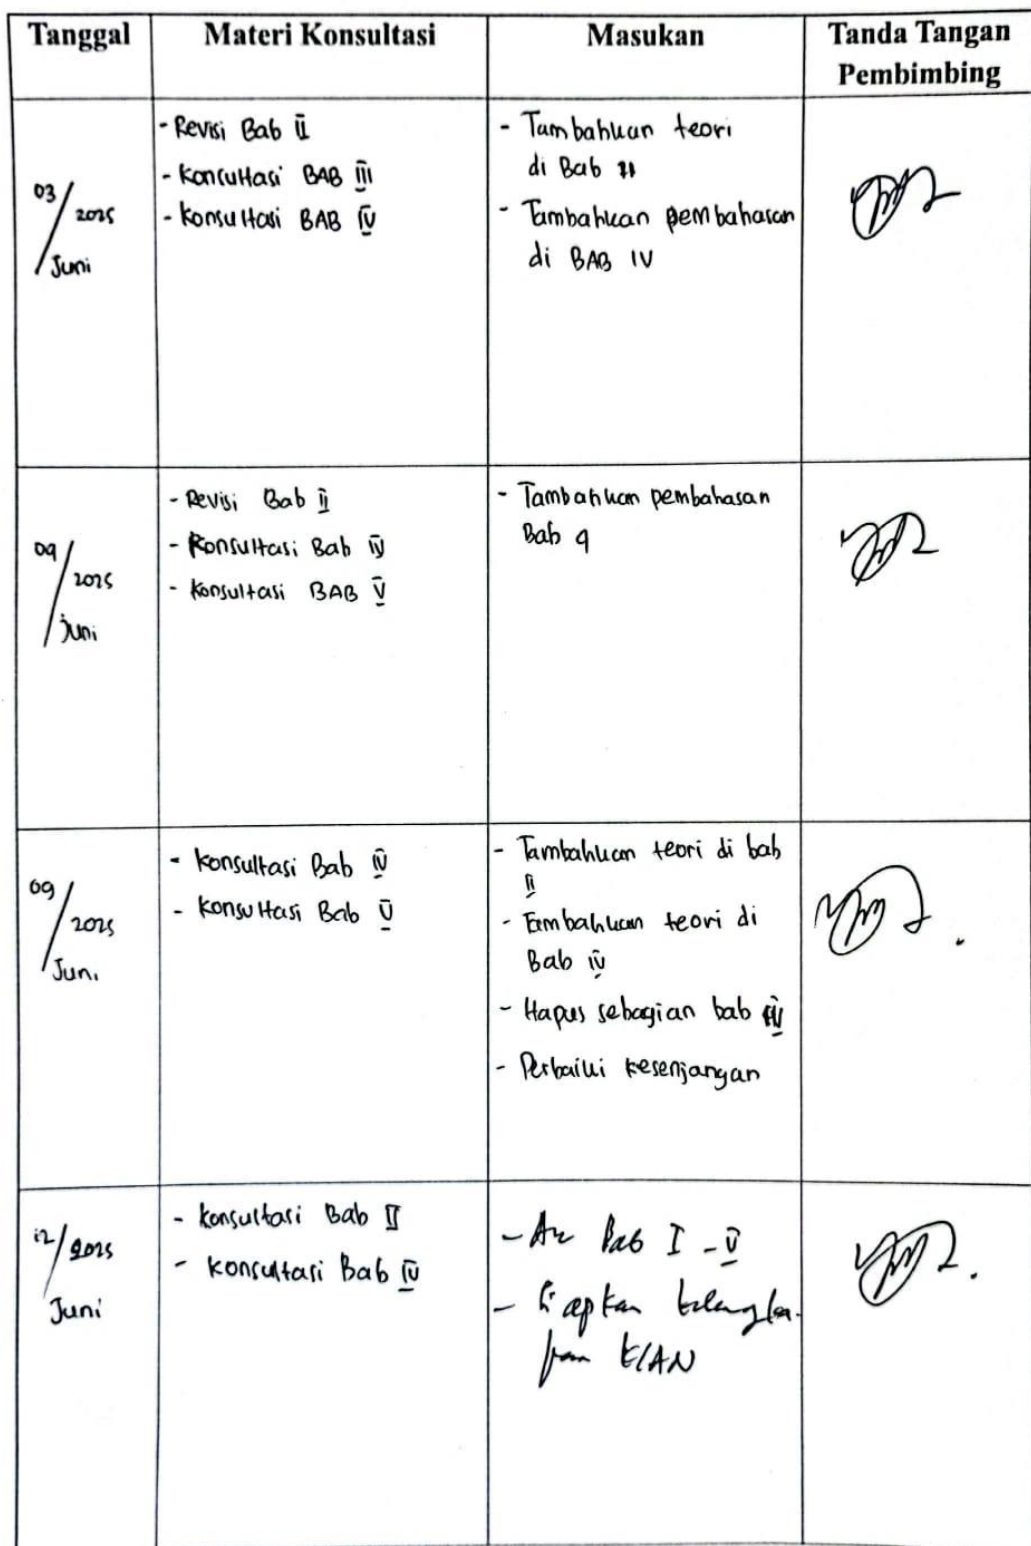 Tanggal
Materi Konsultasi
Masukan
Tanda Tangan
Pembimbing
03/2025
Juni
- Revisi Bab II
- Konsultasi BAB III
- Konsultasi BAB IV
- Tambahkan teori
di Bab II
- Tambahkan pembahasan
di BAB IV
09/2025
Juni
- Revisi Bab II
- Konsultasi Bab IV
- Konsultasi BAB V
- Tambahkan pembahasan
Bab 4
09/2025
Juni
- Konsultasi Bab IV
- Konsultasi Bab V
- Tambahkan teori di bab
II
- Tambahkan teori di
Bab IV
- Hapus sebagian bab IV
- Perbaiki kesenjangan
12/2025
Juni
- Konsultasi Bab II
- Konsultasi Bab IV
- Bab I - V
- Siapkan kelengka-
pan KIAN